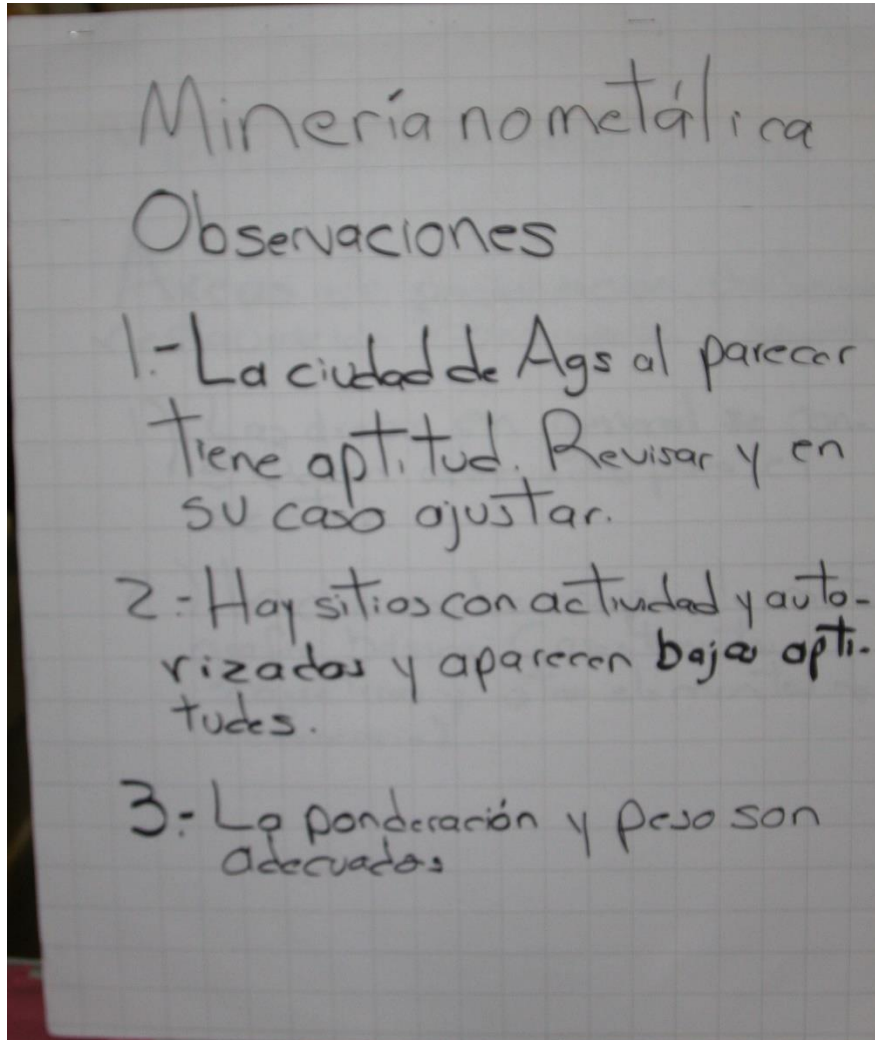 Minería no metálica
Observaciones
1.- La ciudad de Ags al parecer
tiene aptitud. Revisar y en
su caso ajustar.
2.- Hay sitios con actividad y auto-
rizados y aparecen bajas apti-
tudes.
3.- La ponderación y peso son
adecuados